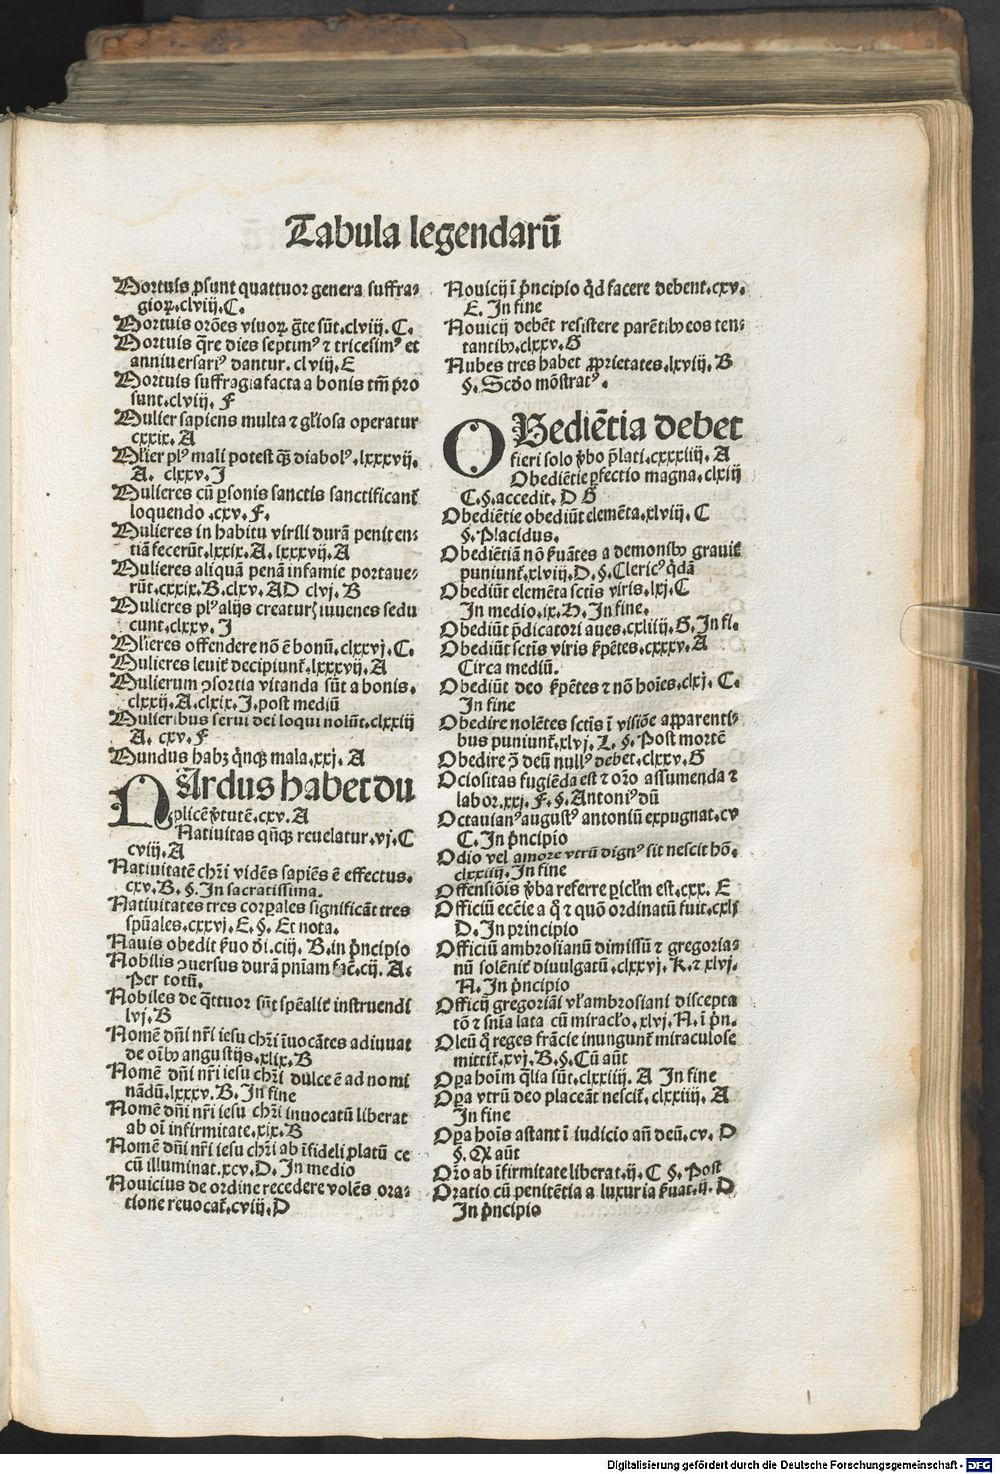 Tabula legendarū
Mortuis ꝓsunt quattuor genera suffra⸗
gioꝝ.clviij.C.
Mortuis orōes viuoꝝ g̃te sūt.clviij.C.
Mortuis q̄re dies septimꝰ ⁊ tricesimꝰ et
anniuersariꝰ dantur.clviij.E
Mortuis suffragia facta a bonis tm̄ p̄ro
sunt.clviij. F
Mulier sapiens multa ⁊ gl̄iosa operatur
cxxix. A
Ml̄ier plꝰ mali potest q̄ꝫ diabolꝰ.lxxxvij.
A. clxxv. J
Mulieres cū ꝑsonis sanctis sanctificant̄
loquendo .cxv. F.
Mulieres in habitu virili durā peniten⸗
tiā fecerūt.lxxix.A.lxxxvij.A
Mulieres aliquā penā infamie portaue⸗
rūt.cxxix.B.clxv.AD clvj.B
Mulieres plꝰ alijs creaturꝭ iuuenes sedu
cunt.clxxv.J
Ml̄ieres offendere nō ē bonū.clxxvj.C.
Mulieres leuit̄ decipiunt̄.lxxxvij.A
Mulierum ꝯsortia vitanda sūt a bonis.
clxxij.A.clxix.J.post mediū
Mulieribus serui dei loqui nolūt.clxxiij
A. cxv.F
Mundus habꝫ q̄nqꝫ mala.xxj. A
NArdus habet du
plicē v̄tutē.cxv. A
Natiuitas qn̄qꝫ reuelatur.vj.C
cviij.A
Natiuitatē chr̄i vidēs sapiēs ē effectus.
cxv.B.§.In sacratissima.
Natiuitates tres corꝑales significāt tres
spūales.cxxvj.E.§. Et nota.
Nauis obedit ẜuo dī.ciij. B.in p̄ncipio
Nobilis ꝯuersus durā pn̄iam fac̄.cij. A.
Per totū.
Nobiles de q̄ttuor sūt spēalit̄ instruendi
lvj.B
Nomē dn̄i nr̄i iesu chr̄i īuocātes adiuuat
de oībꝫ angustijs.xlix.B
Nomē dn̄i nr̄i iesu chr̄i dulce ē ad nomi
nādū.lxxxv.B. In fine
Nomē dn̄i nr̄i iesu chr̄i inuocatū liberat
ab oī infirmitate.xix.B
Nomē dn̄i nr̄i iesu chr̄i ab īfideli ꝓlatū ce
cū illuminat.xcv.D. In medio
Nouicius de ordine recedere volēs ora⸗
tione reuocat̄.cviij.D
Nouicij ī p̄ncipio qd̄ facere debent.cxv.
E. In fine
Nouicij debēt resistere parētibꝫ eos ten⸗
tantibꝫ.clxxv.G
Nubes tres habet ꝓprietates.lxviij. B
§. Scd̄o mōstratꝰ.
OBediētia debet
fieri solo v̄bo p̄lati.cxxxiiij. A
Obediētie ꝑfectio magna.clxiij
C.§.accedit. D G
Obediētie obediūt elemēta.xlviij. C
§.Placidus.
Obediētiā nō ẜuātes a demonibꝫ grauit̄
puniunt̄.xlviij.D.§.Clericꝰ qdā
Obediūt elemēta sctīs viris.lxj.C
In medio.ix.H. In fine.
Obediūt p̄dicatori aues.cxliiij.G.In fi.
Obediūt sctīs viris ẜpētes.cxxxv.A
Circa mediū.
Obediūt deo ẜpētes ⁊ nō hoīes.clxj. C.
In fine
Obedire nolētes sctīs ī visiōe apparenti⸗
bus puniunt̄.xlvj. L. §. Post mortē
Obedire ꝯ deū nullꝰ debet.clxxv.G
Ociositas fugiēda est ⁊ or̄o assumenda ⁊
labor.xxj. F.§.Antoniꝰ dū
Octauianꝰ augustꝰ antoniū expugnat.cv
C. In p̄ncipio
Odio vel amore vtrū dignꝰ sit nescit hō.
clxxiiij. In fine
Offensiōis v̄ba referre ꝑicl̄m est.cxx. E
Officiū eccīe a q̄ ⁊ quō ordinatū fuit.cxlj
D. In principio
Officiū ambrosianū dimissū ⁊ gregoria⸗
nū solēnit̄ diuulgatū.clxxvj. K.⁊ xlvj.
N. In p̄ncipio
Officij gregoriāi vl̄ ambrosiani discepta
tō ⁊ sn̄ia lata cū mirac̄lo.xlvj.N.ī p̄n.
Oleū q̄ reges frācie inungunt̄ miraculose
mittit̄.xvj.B.§.Cū aūt
Oꝑa hoīm q̄lia sūt.clxxiiij. A In fine
Oꝑa vtrū deo placeāt nescit̄.clxxiiij. A
In fine
Oꝑa hoīs astant ī iudicio an̄ deū.cv. D
§. Qꝛ aūt
Or̄o ab īfirmitate liberat.ij. C §. Post
Oratio cū penitētia a luxuria ẜuat.ij. D
In p̄ncipio
Digitalisierung gefördert durch die Deutsche Forschungsgemeinschaft - DFG